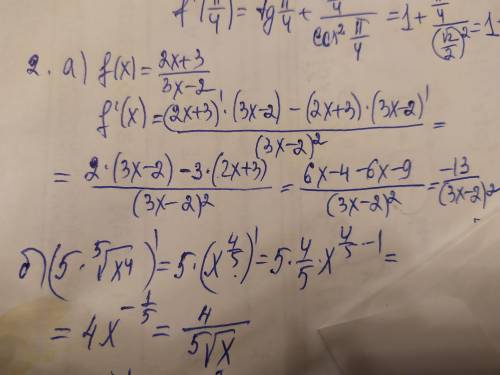 f'(π/4) = tg π/4 + (π/4)/(cos² π/4) = 1 + (π/4)/((√2/2)²) = 1
2. а) f(x) = (2x+3)/(3x-2)
f'(x) = ((2x+3)'·(3x-2) - (2x+3)·(3x-2)')/((3x-2)²) =
= (2·(3x-2) - 3·(2x+3))/((3x-2)²) = (6x-4-6x-9)/((3x-2)²) = -13/((3x-2)²)
б) (5·⁵√x⁴)' = 5·(x^(4/5))' = 5·4/5·x^(4/5-1) =
= 4x^(-1/5) = 4/(⁵√x)